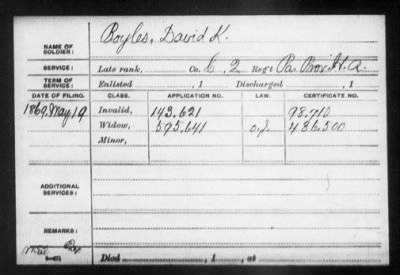 NAME OF SOLDIER: Boyles, David K.
SERVICE: Late rank, Co. C, 2 Reg't Pa. Prov. H. A.
TERM OF SERVICE: Enlisted , 1 Discharged , 1
DATE OF FILING. CLASS. APPLICATION NO. LAW. CERTIFICATE NO.
1869. May 19 Invalid, 143.621 98.710
Widow, 595.641 o.j. 436.500
Minor,
ADDITIONAL SERVICES:
REMARKS:
Died , 1 , at